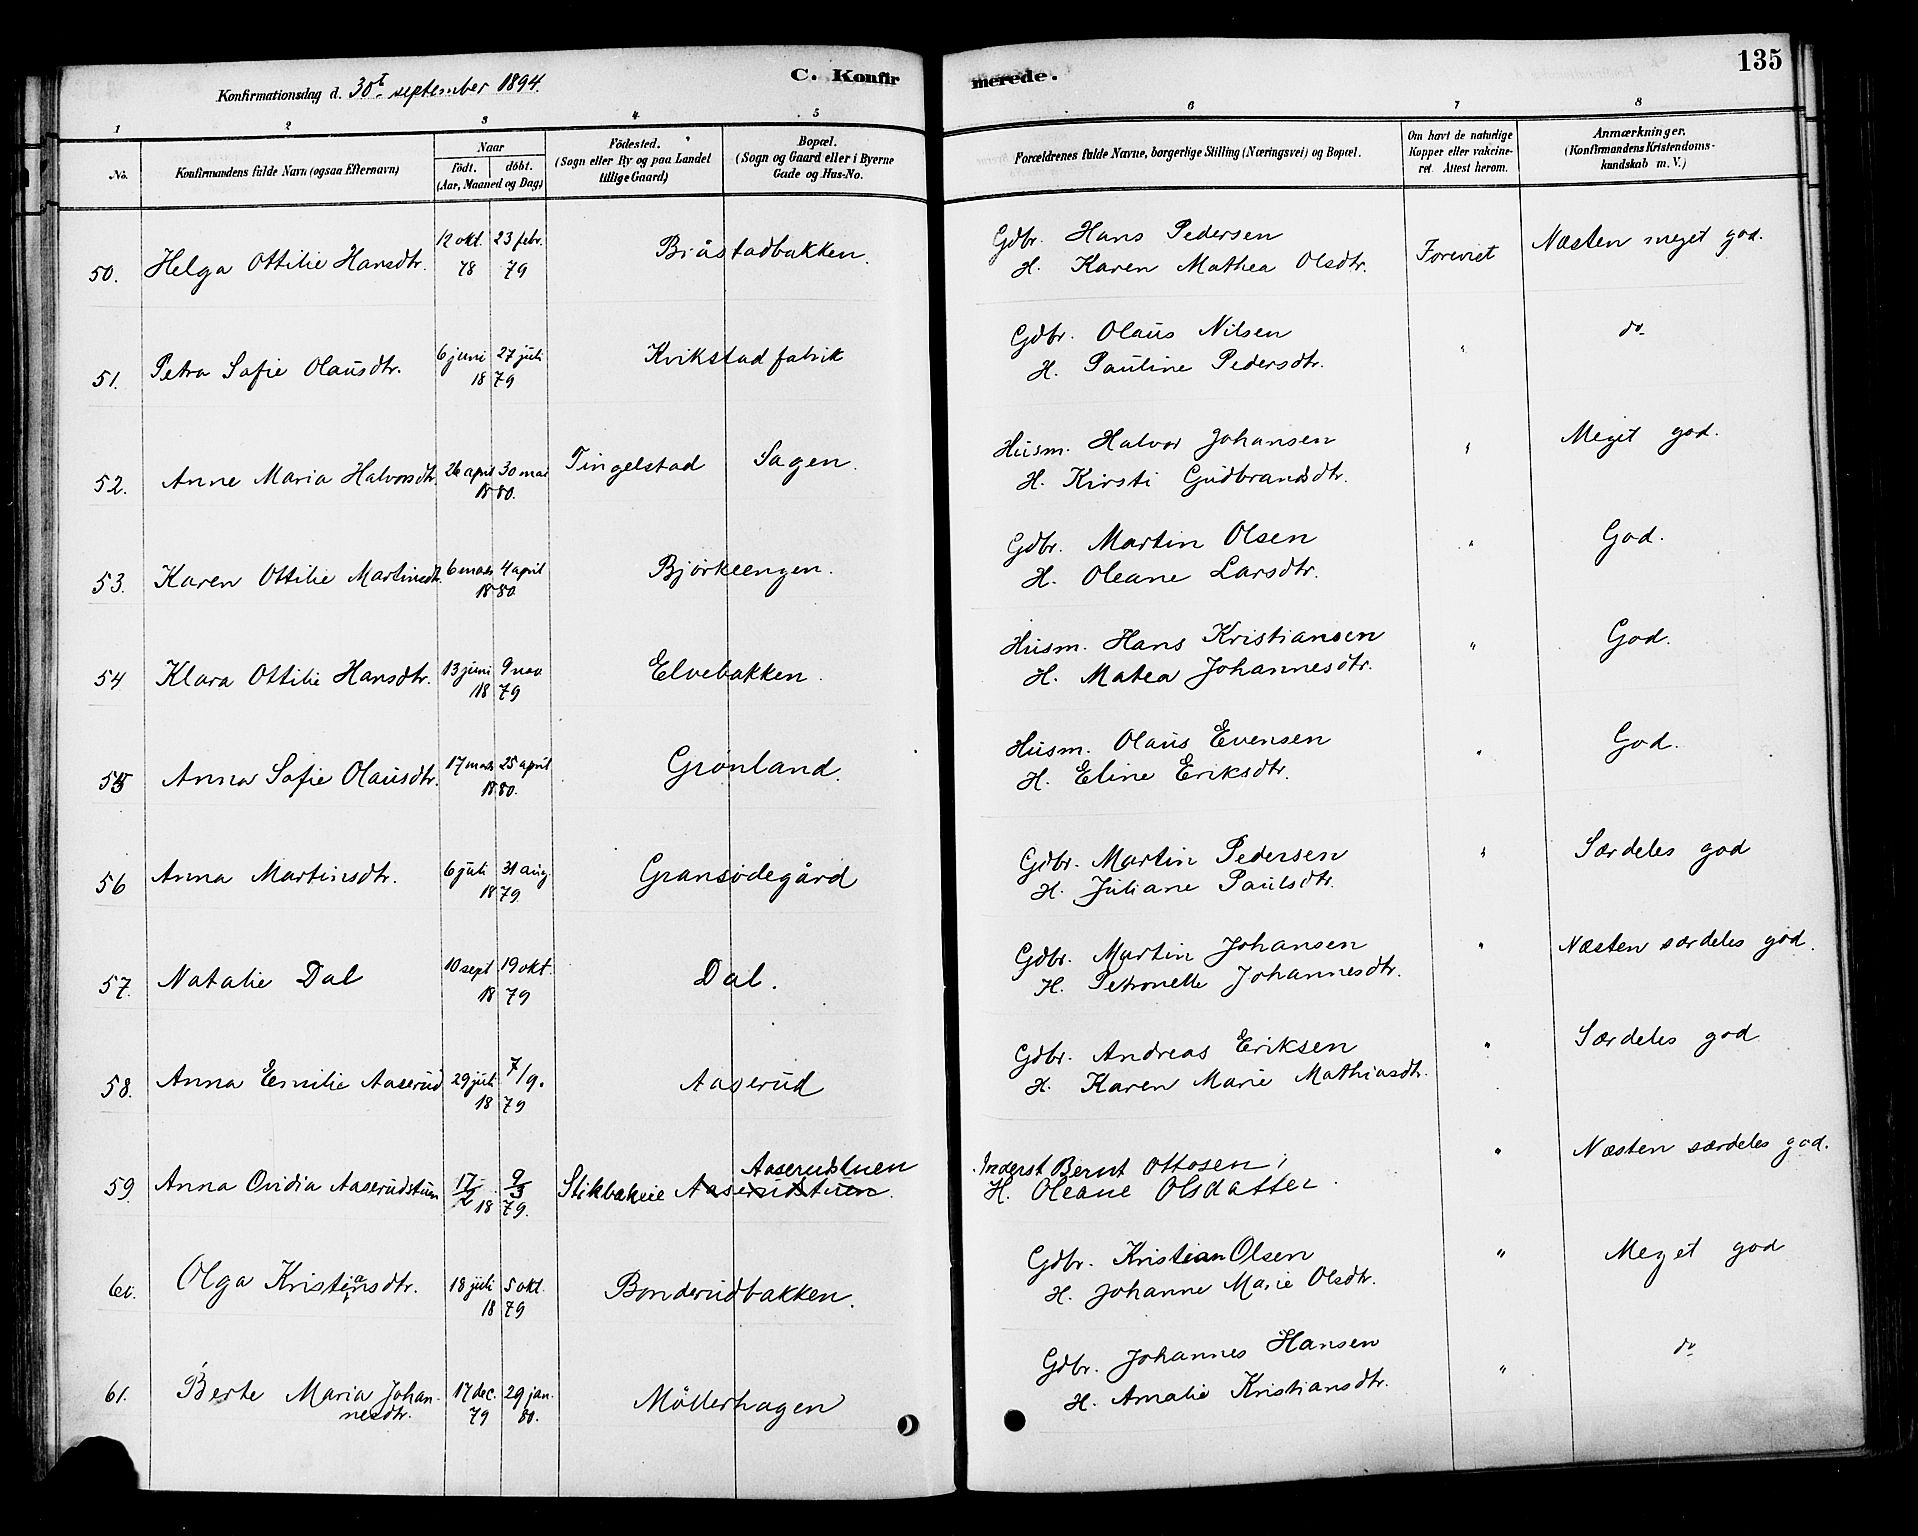 135
C. Konfirmerede.
Konfirmationsdag d. 30t september 1894.
1 2 3 4 5 6 7 8
No. Konfirmandens fulde Navn (ogsaa Efternavn)
Naar
Födt. döbt.
(Aar, Maaned og Dag)
Födested.
(Sogn eller By og paa Landet
tillige Gaard)
Bopæl.
(Sogn og Gaard eller i Byerne
Gade og Hus-No.
Forældrenes fulde Navne, borgerlige Stilling (Næringsvei) og Bopæl.
Om havt de naturlige
Kopper eller vakcine-
ret. Attest herom.
Anmærkninger,
(Konfirmandens Kristendoms-
kundskab m. V.)
50. Helga Ottilie Hansdtr. 12 okt. 78 23 febr. 79 Bråstadbakken. Gdbr. Hans Pedersen
H. Karen Mathea Olsdtr. Foreviet Næsten meget god.
51. Petra Sofie Olausdtr. 6 juni 27 juli 1879 Kvikstad fabrik Gdbr. Olaus Nilsen
H. Pauline Pedersdtr. " do
52. Anne Maria Halvorsdtr. 26 april 30 mai 1880. Tingelstad Sagen. Husm. Halvor Johansen
H. Kirsti Gudbrandsdtr. " Meget god.
53. Karen Ottilie Martinsdtr. 6 mars 4 april 1880 Bjørkeengen. Gdbr. Martin Olsen
H. Oleane Larsdtr. " God.
54 Klara Ottilie Hansdtr. 13 juni 9 nov 1879 Elvebakken. Husm. Hans Kristiansen
H. Matea Johannesdtr. " God.
55 Anna Sofie Olausdtr. 17 mars 25 april 1880. Grønland. Husm. Olaus Evensen
H. Eline Eriksdtr. " God.
56 Anna Martinsdtr. 6 juli 31 aug 1879 Gransødegård Gdbr. Martin Pedersen
H. Juliane Paulsdtr. " Særdeles god
57. Natalie Dal 10 sept 19 okt. 1879 Dal. Gdbr. Martin Johansen
H. Petronelle Johannesdtr. " Næsten særdeles god.
58. Anna Emilie Aaserud 29 juli 7/9. 1879 Aaserud Gdbr. Andreas Eriksen
H. Karen Marie Mathiasdtr. " Særdeles god
Aaserudstuen
59. Anna Ovidia Aaserudstuen 17/2 9/3 1879. Stikbakeie Aaserudstuen. Inderst Bernt Ottosen i
H. Oleane Olsdatter. " Næsten særdeles god.
60. Olga Kristiansdtr. 18 juli 5 okt. 1879 Bonderudbakken. Gdbr. Kristian Olsen
H. Johanne Marie Olsdtr. " Meget god
61. Berte Maria Johan-
nesdtr. 17 dec. 79 29 jan. 80. Möllerhagen Gdbr. Johannes Hansen
H. Amalie Kristiansdtr. " do